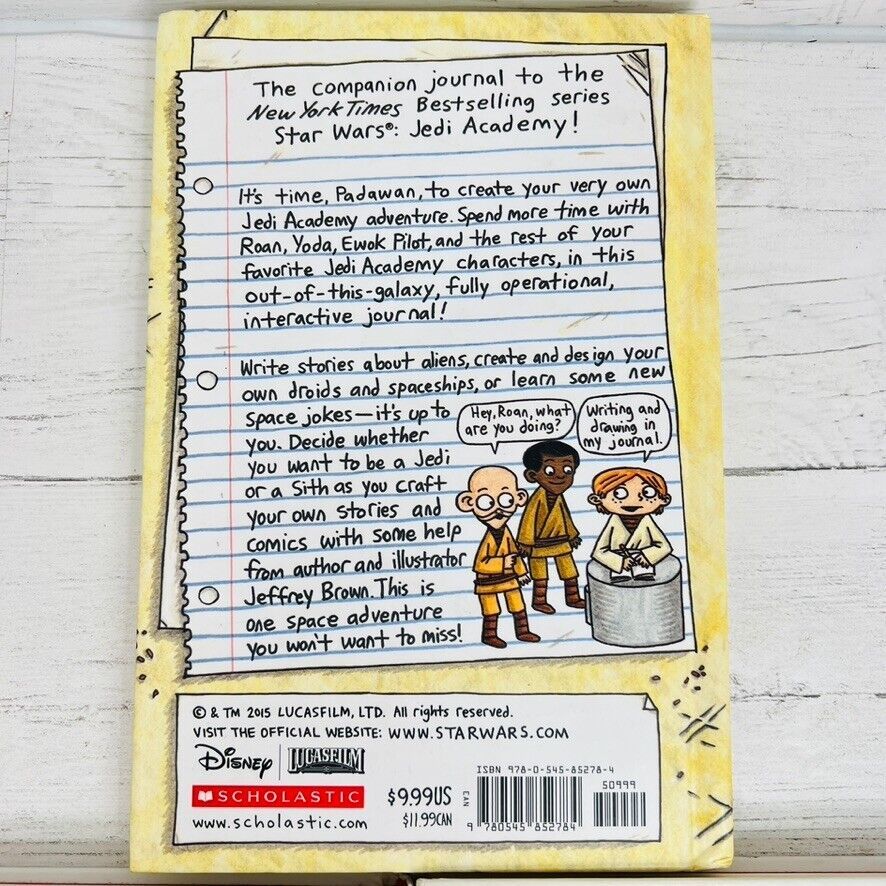 The companion journal to the
New York Times Bestselling series
Star Wars®: Jedi Academy!
It's time, Padawan, to create your very own
Jedi Academy adventure. Spend more time with
Roan, Yoda, Ewok Pilot, and the rest of your
favorite Jedi Academy characters, in this
out-of-this-galaxy, fully operational,
interactive journal!
Write stories about aliens, create and design your
own droids and spaceships, or learn some new
space jokes—it's up to
you. Decide whether
you want to be a Jedi
or a Sith as you craft
your own stories and
comics with some help
from author and illustrator
Jeffrey Brown. This is
one space adventure
you won't want to miss!
Hey, Roan, what
are you doing?
Writing and
drawing in
my journal.
© & TM 2015 LUCASFILM, LTD. All rights reserved.
VISIT THE OFFICIAL WEBSITE: WWW.STARWARS.COM
Disney LUCASFILM
SCHOLASTIC
www.scholastic.com
$9.99US
$11.99CAN
EAN
ISBN 978-0-545-85278-4
50999
9 780545 852784